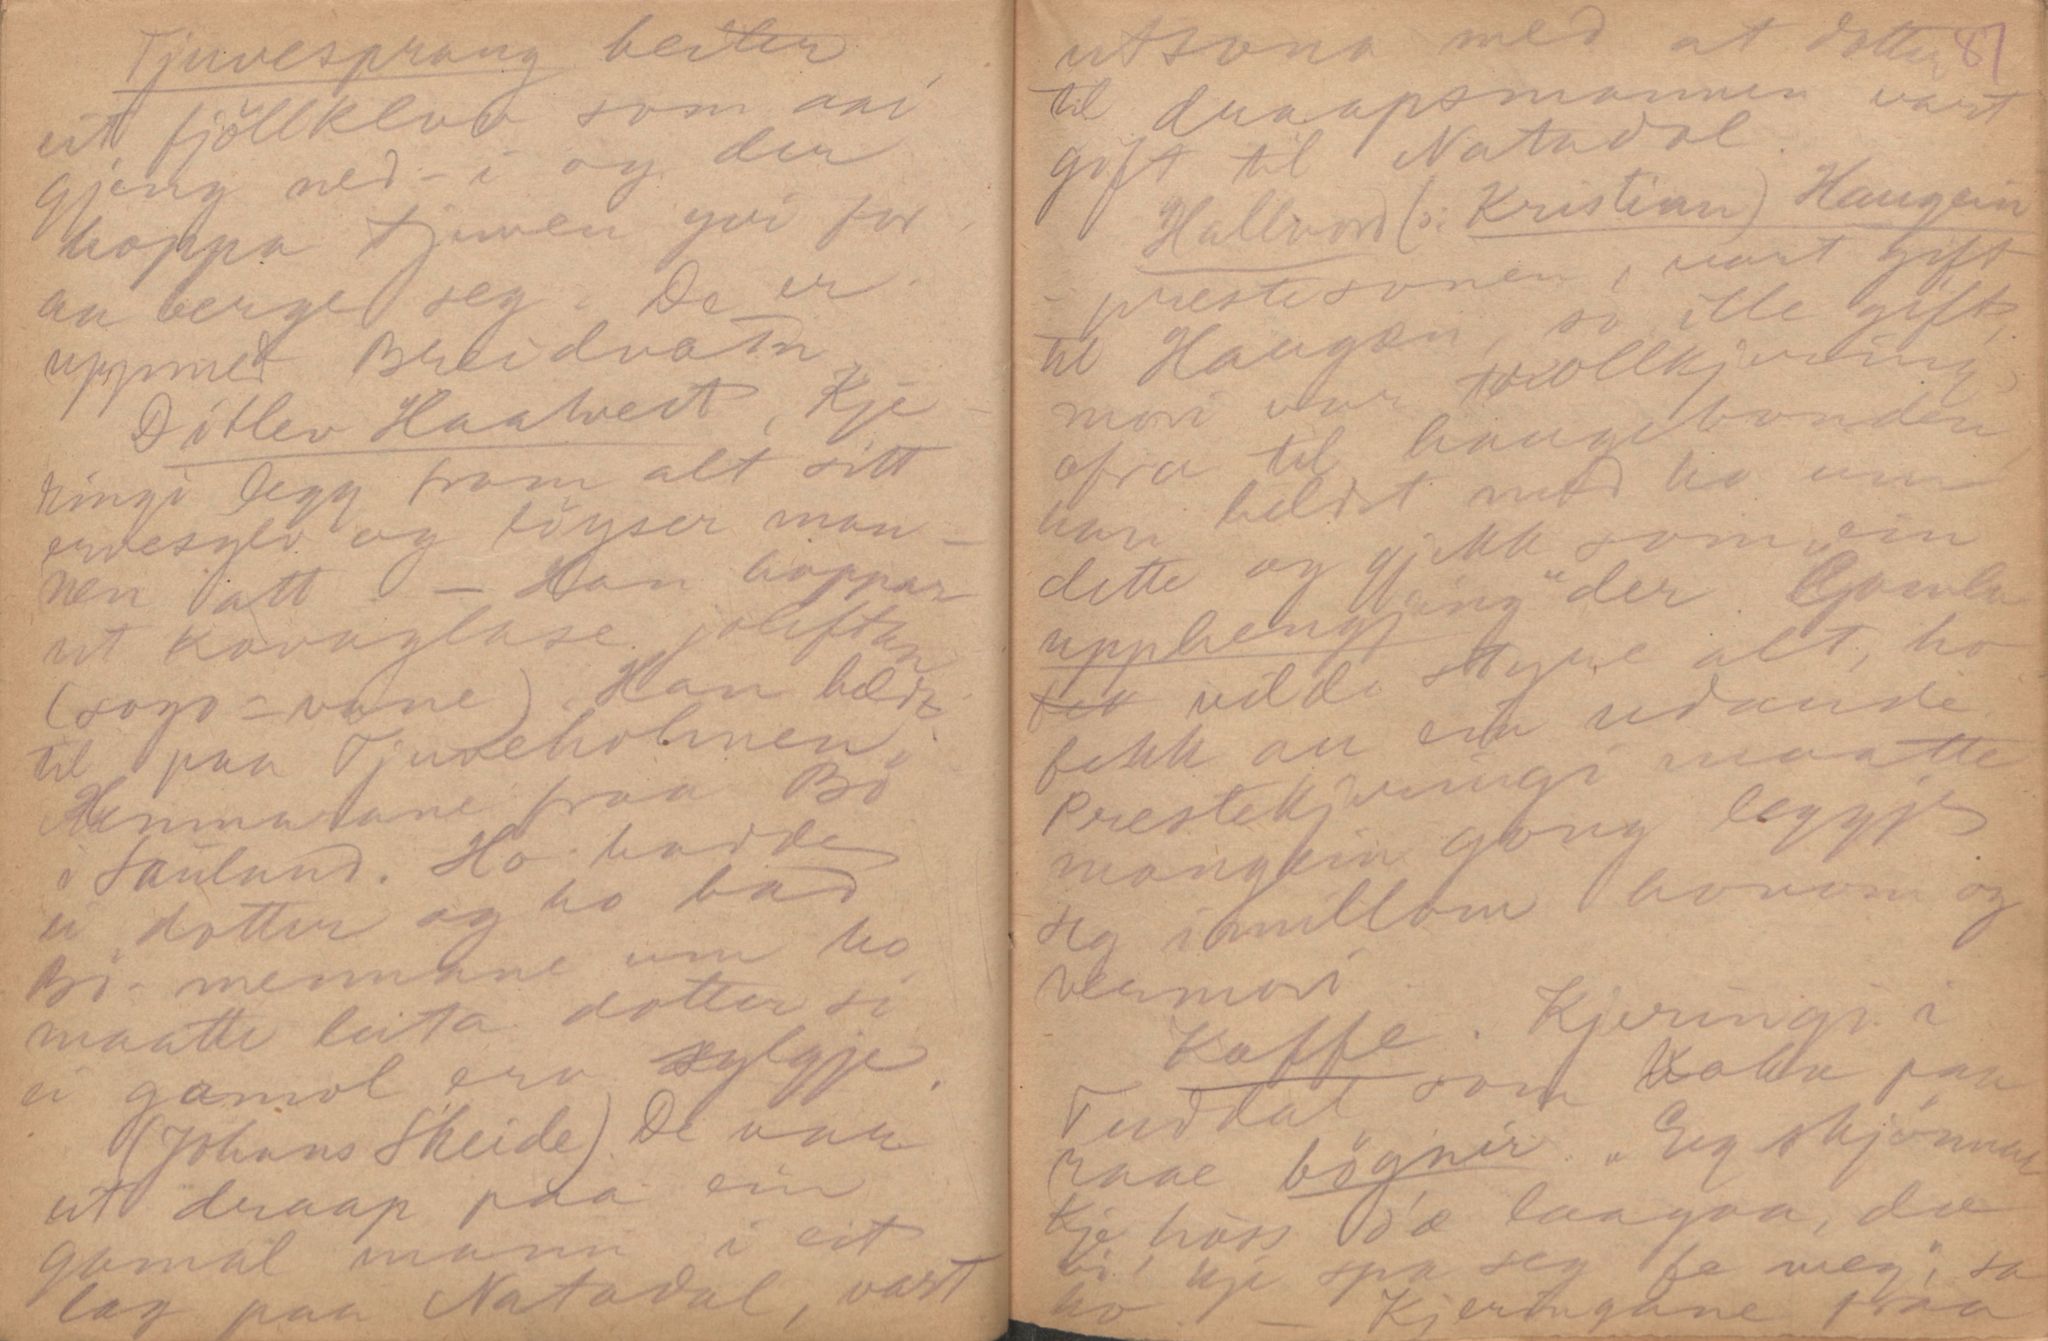 Tjuvesprang heiter
eit fjöllklov som aai
gjeng ned-i og der
hoppa tjuven yvi for
aa berge seg. De er
uppmed Breidvatn
Ditlev Haatveit, Kje-
ringi legg fram alt sitt
ervesylv og löyser man-
nen att – Han hoppar
ut kovaglase jolaftan
(sogo = vane). Han heldt
til paa Tjuveholmen,
Hemmarane fraa Bö
i Sauland. Ho hadde
ei dotter og ho bad
Bö-mennane um ho
maatte leita dotter si
ei gamol era sylgje.
(Johans Skeide) De var
eit draap paa ein
gamal mann i eit
lag paa Natadal, vart
87
utsona med at dotter
til draapsmannen vart
gift til Natadal.
Hallvord (ɔ: Kristian) Haugein
– prestesonen, vart gift
til Haugæn, so ille gift,
mori var trollkjering
ifra til haugebonden
han heldt med ho um
dette og gjekk som ein
"upphengjing" der. Gamla
vilde styre alt, ho
fekk au ein udaude
Prestekjeringi maatte
mangein gong leggje
seg imillom honom og
vermori
Kaffe. Kjeringi i
Tuddal som koka paa
raae bögnir. "Eg skjönnar
kje hoss d'æ laagaa, dæ
vi' kje spa seg fe meg", sa
ho – Kjeringane fraa